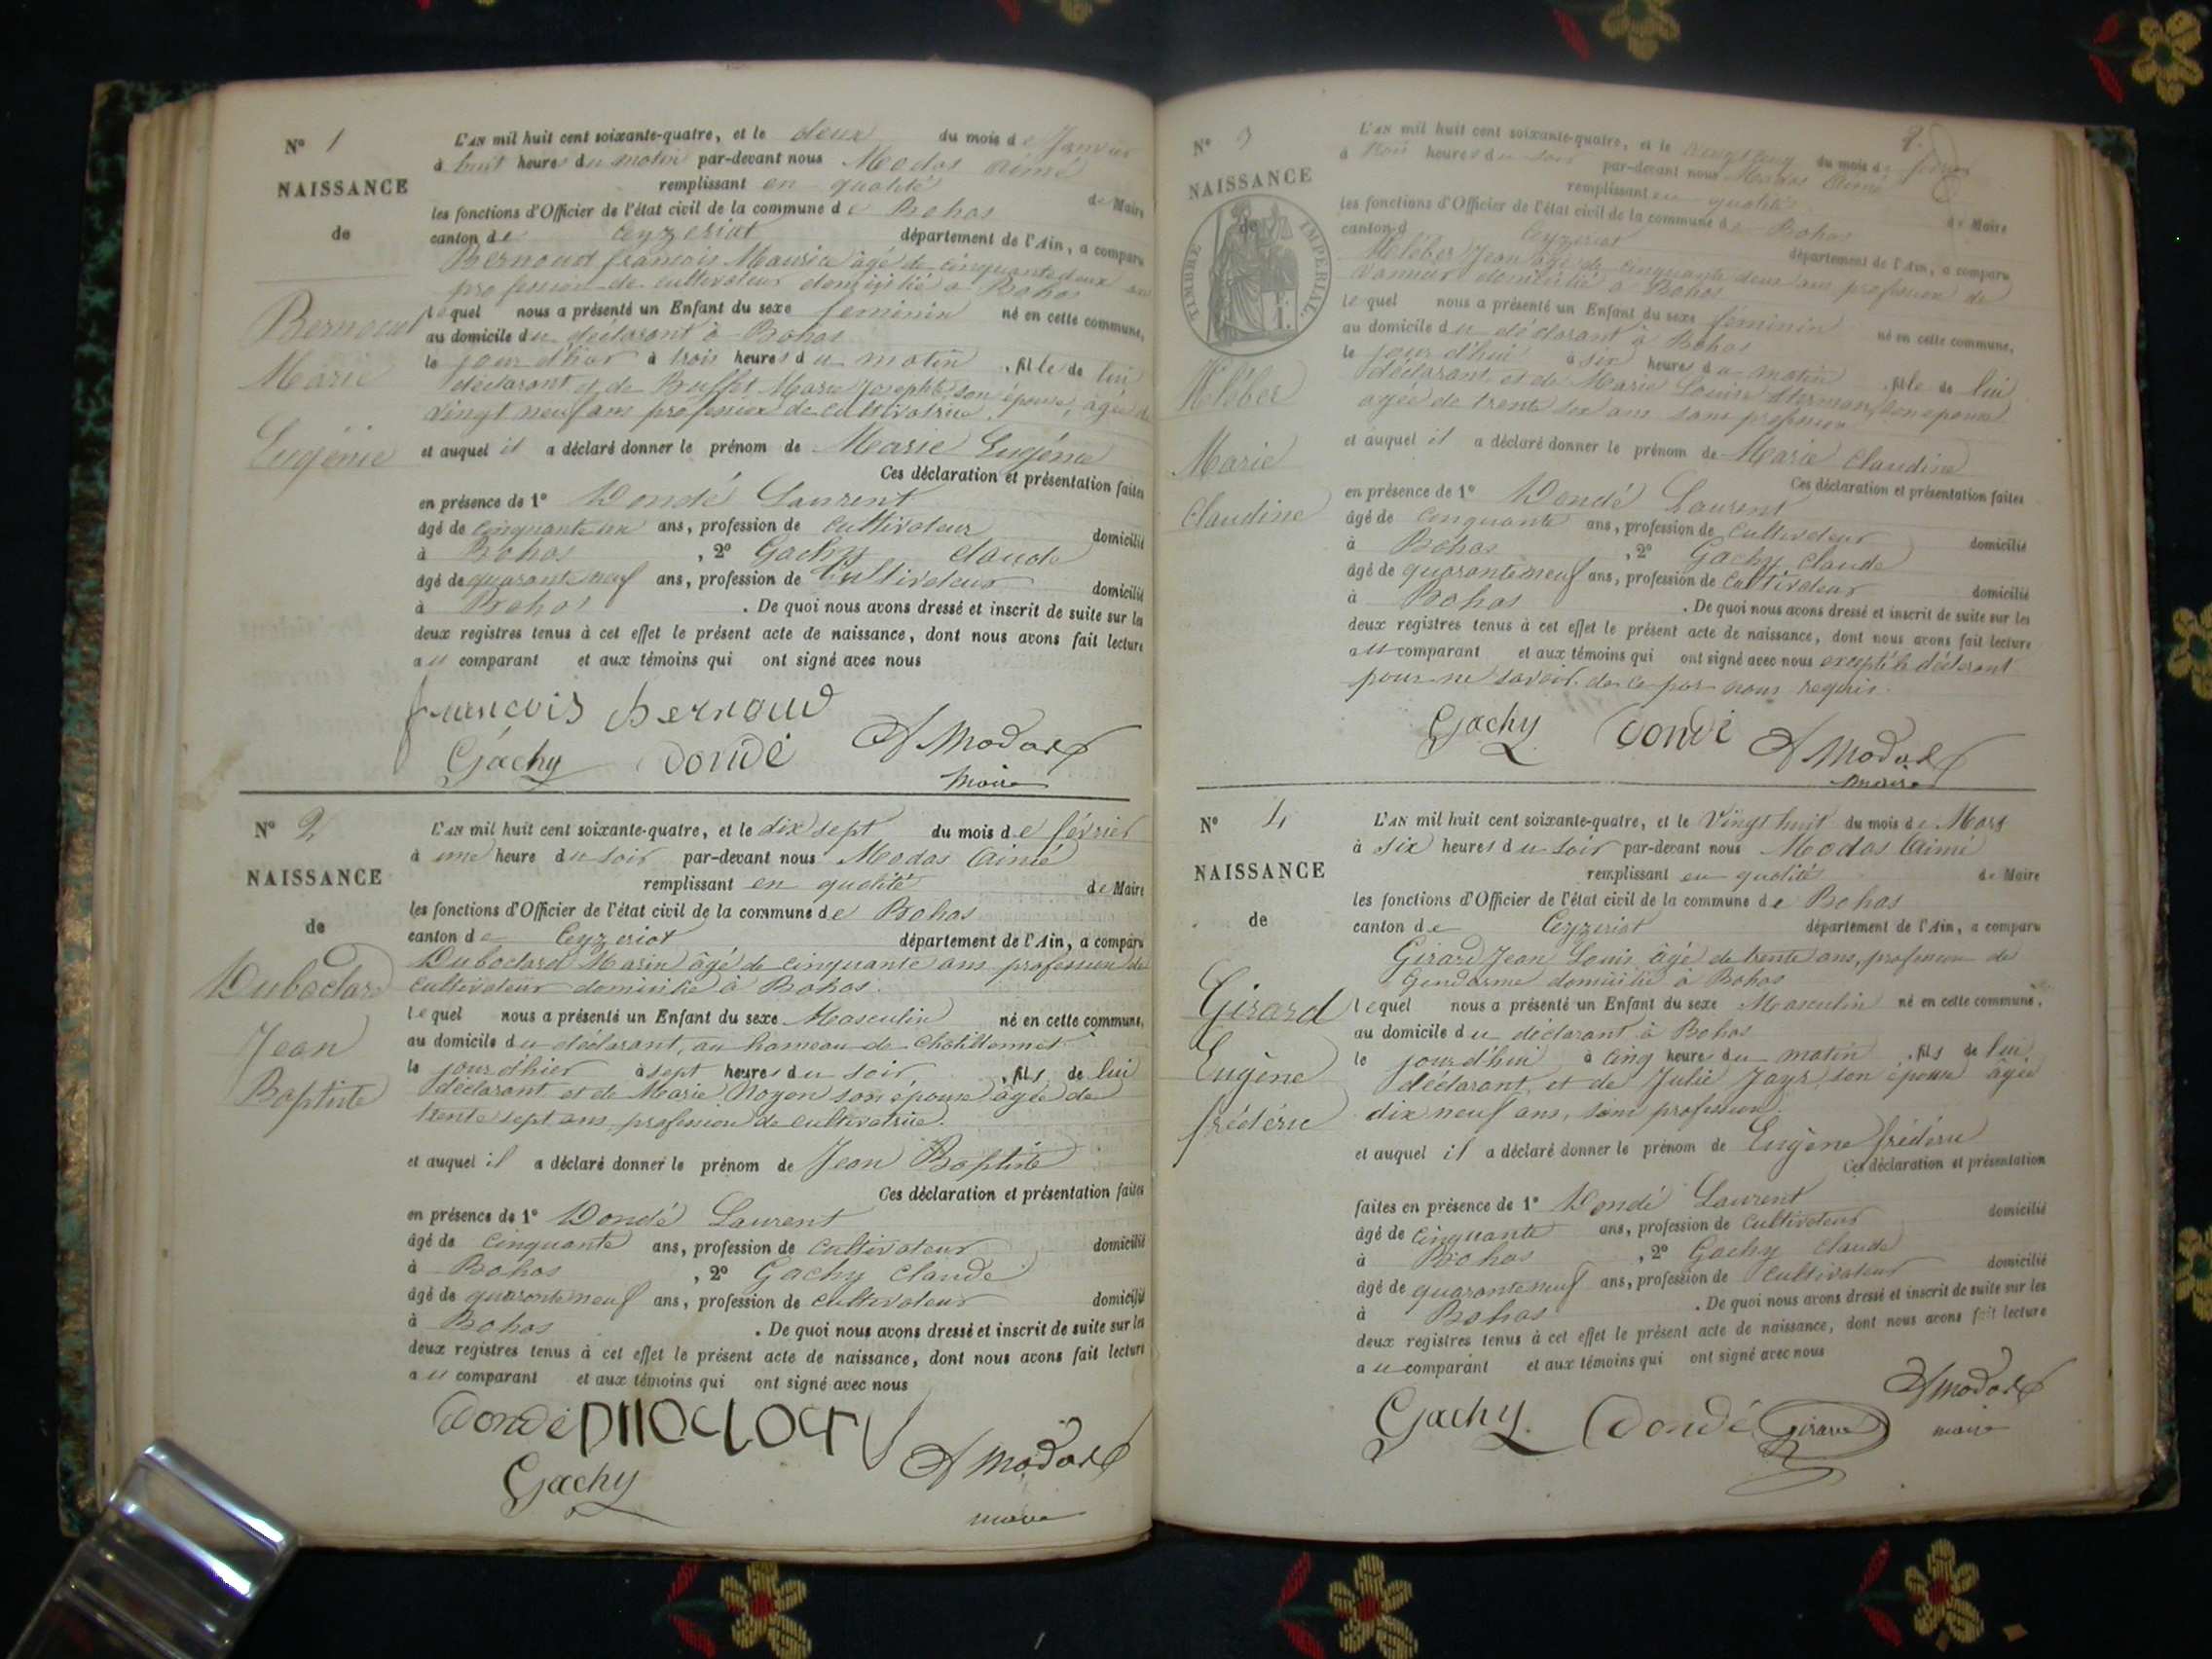 N° 1
NAISSANCE
de
Bernoud
Marie
Eugénie
L'AN mil huit cent soixante-quatre, et le deux du mois de Janvier
à huit heures du matin par-devant nous Modas aimé
remplissant en qualité de Maire
les fonctions d'Officier de l'état civil de la commune de Bohas
canton de Ceyzeriat département de l'Ain, a comparu
Bernoud françois Maurice âgé de cinquante deux an
profession de cultivateur domicilié à Bohas
lequel nous a présenté un Enfant du sexe féminin né en cette commune,
au domicile du déclarant à Bohas
le jour d'hier à trois heures du matin , fille de lui
déclarant et de Buffet Marie Josephte son épouse, âgée de
vingt neuf ans profession de cultivatrice.
et auquel il a déclaré donner le prénom de Marie Eugénie
Ces déclaration et présentation faites
en présence de 1° Dondé Laurent
âgé de cinquante un ans, profession de cultivateur domicilié
à Bohas , 2° Gachy claude
âgé de quarante neuf ans, profession de Cultivateur domicilié
à Bohas . De quoi nous avons dressé et inscrit de suite sur les
deux registres tenus à cet effet le présent acte de naissance, dont nous avons fait lecture
au comparant et aux témoins qui ont signé avec nous
francois bernoud
Gachy Dondé A Modas
maire
N° 2
NAISSANCE
de
Duboclard
Jean
Baptiste
L'AN mil huit cent soixante-quatre, et le dix sept du mois de février
à une heure du soir par-devant nous Modas aimé
remplissant en qualité de Maire
les fonctions d'Officier de l'état civil de la commune de Bohas
canton de Ceyzeriat département de l'Ain, a comparu
Duboclard Marin âgé de cinquante ans profession de
cultivateur domicilié à Bohas.
lequel nous a présenté un Enfant du sexe Masculin né en cette commune,
au domicile du déclarant, au hameau de Chatillonnet
le jour d'hier à sept heures du soir , fils de lui
déclarant et de Marie Noyon son épouse âgée de
trente sept ans profession de cultivatrice.
et auquel il a déclaré donner le prénom de Jean Baptiste
Ces déclaration et présentation faites
en présence de 1° Dondé Laurent
âgé de cinquante ans, profession de cultivateur domicilié
à Bohas , 2° Gachy Claude
âgé de quarante neuf ans, profession de cultivateur domicilié
à Bohas . De quoi nous avons dressé et inscrit de suite sur les
deux registres tenus à cet effet le présent acte de naissance, dont nous avons fait lecture
au comparant et aux témoins qui ont signé avec nous
Dondé
Gachy A Modas
maire
N° 3
NAISSANCE
de
TIMBRE IMPERIAL.
Kléber
Marie
claudine
L'AN mil huit cent soixante-quatre, et le vingt cinq du mois de février
à trois heures du soir par-devant nous Modas Aimé
remplissant en qualité de Maire
les fonctions d'Officier de l'état civil de la commune de Bohas
canton d Ceyzeriat département de l'Ain, a comparu
Kléber Jean âgé de cinquante deux ans profession de
vannier domicilié à Bohas
lequel nous a présenté un Enfant du sexe féminin né en cette commune,
au domicile du déclarant à Bohas
le jour d'hui à six heures du matin , fille de lui
déclarant et de Marie Louise Herman, son épouse
agée de trente six ans sans profession
et auquel il a déclaré donner le prénom de Marie Claudine
Ces déclaration et présentation faites
en présence de 1° Dondé Laurent
âgé de cinquante ans, profession de cultivateur domicilié
à Bohas , 2° Gachy Claude
âgé de quarante neuf ans, profession de cultivateur domicilié
à Bohas . De quoi nous avons dressé et inscrit de suite sur les
deux registres tenus à cet effet le présent acte de naissance, dont nous avons fait lecture
au comparant et aux témoins qui ont signé avec nous excepté le déclarant
pour ne savoir de ce par nous requis.
Gachy Dondé A Modas
maire
N° 4
NAISSANCE
de
Girard
Eugène
frédéric
L'AN mil huit cent soixante-quatre, et le Vingt huit du mois de Mars
à six heures du soir par-devant nous Modas Aimé
remplissant en qualité de Maire
les fonctions d'Officier de l'état civil de la commune de Bohas
canton de Ceyzeriat département de l'Ain, a comparu
Girard Jean Louis âgé de trente ans, profession de
Gendarme domicilié à Bohas
lequel nous a présenté un Enfant du sexe Masculin né en cette commune,
au domicile du déclarant à Bohas
le jour d'hui à cinq heures du matin , fils de lui
déclarant et de Julie Jayr, son épouse âgée
dix neuf ans, sans profession.
et auquel il a déclaré donner le prénom de Eugène frédéric
Ces déclaration et présentation
faites en présence de 1° Dondé Laurent
âgé de cinquante ans, profession de cultivateur domicilié
à Bohas , 2° Gachy claude
âgé de quarante neuf ans, profession de cultivateur domicilié
à Bohas . De quoi nous avons dressé et inscrit de suite sur les
deux registres tenus à cet effet le présent acte de naissance, dont nous avons fait lecture
au comparant et aux témoins qui ont signé avec nous
A Modas
Gachy Dondé Girard maire